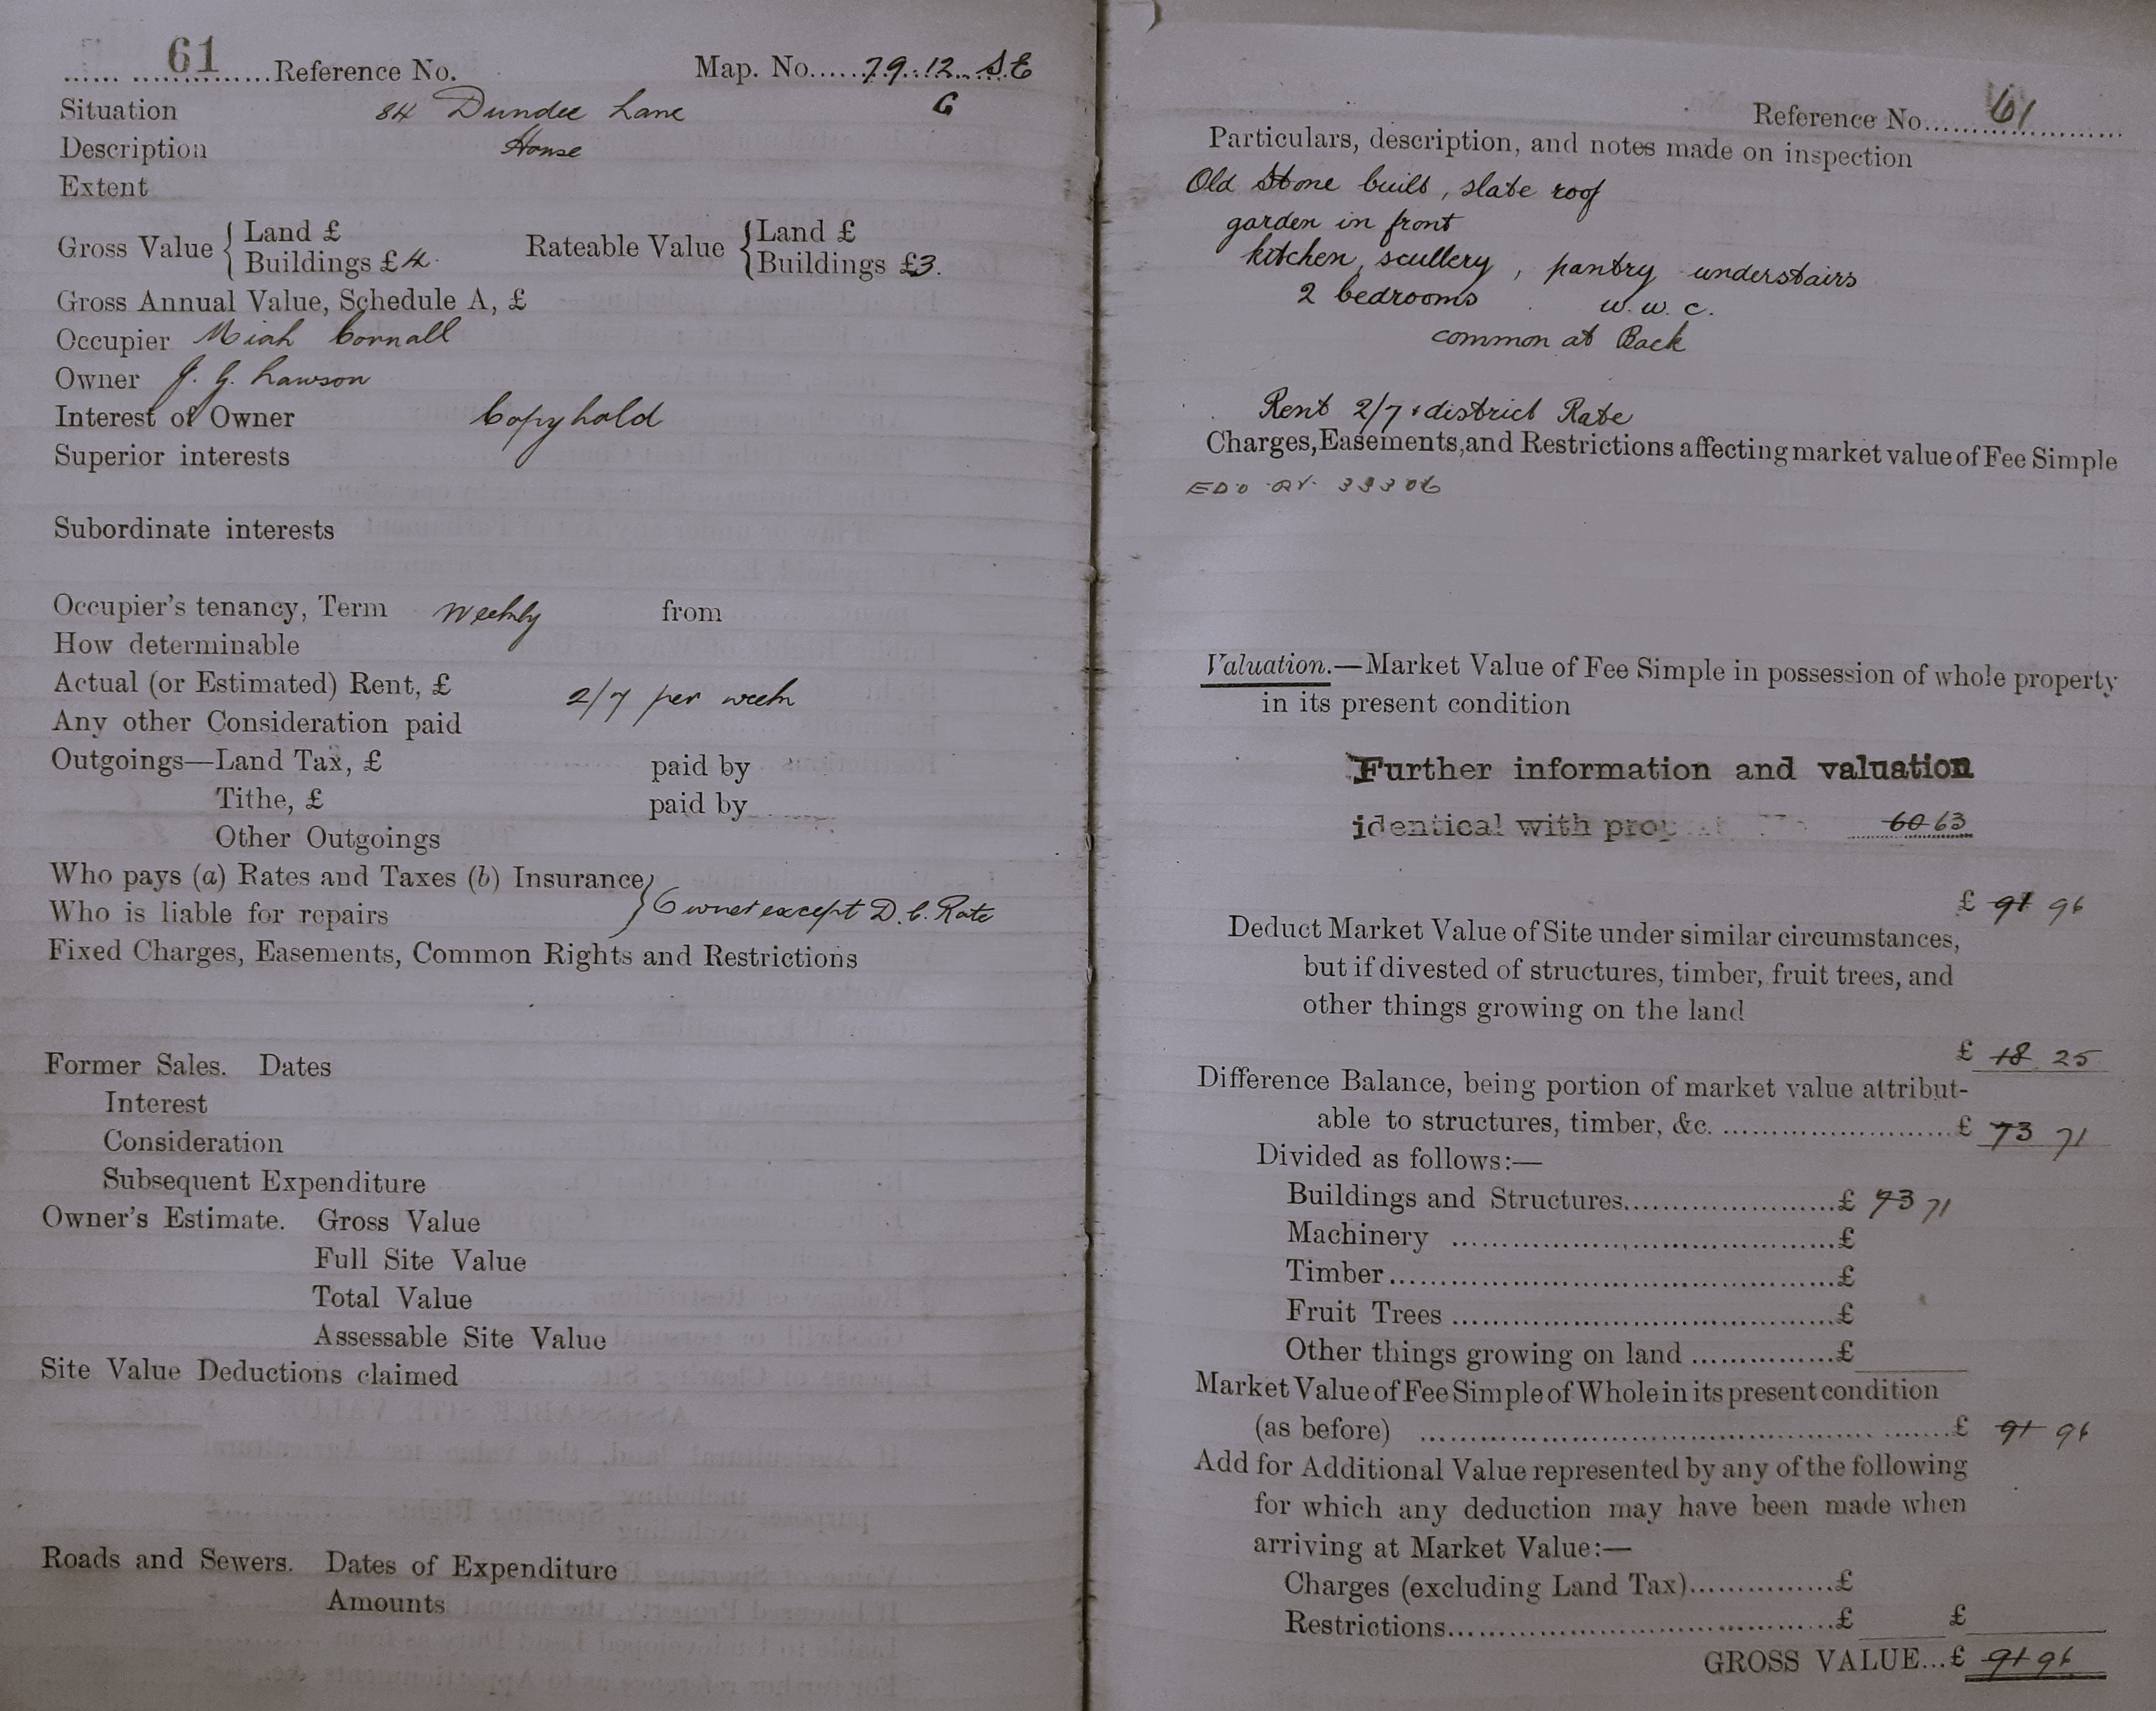 61 Reference No. Map. No. 79.12 S.E
Situation 84 Dundee Lane G
Description House
Extent
Gross Value { Land £ Rateable Value { Land £
Buildings £4. Buildings £3.
Gross Annual Value, Schedule A, £
Occupier Miah Cornall
Owner J. G. Lawson
Interest of Owner Copyhold
Superior interests
Subordinate interests
Occupier's tenancy, Term Weekly from
How determinable
Actual (or Estimated) Rent, £ 2/7 per week
Any other Consideration paid
Outgoings—Land Tax, £ paid by
Tithe, £ paid by
Other Outgoings
Who pays (a) Rates and Taxes (b) Insurance }
Who is liable for repairs Owner except D.C. Rate
Fixed Charges, Easements, Common Rights and Restrictions
Former Sales. Dates
Interest
Consideration
Subsequent Expenditure
Owner's Estimate. Gross Value
Full Site Value
Total Value
Assessable Site Value
Site Value Deductions claimed
Roads and Sewers. Dates of Expenditure
Amounts
Reference No. 61
Particulars, description, and notes made on inspection
Old Stone built, slate roof
garden in front
kitchen, scullery, pantry understairs
2 bedrooms w.w.c.
common at Back
Rent 2/7 + district Rate
Charges, Easements, and Restrictions affecting market value of Fee Simple
33306
Valuation.—Market Value of Fee Simple in possession of whole property
in its present condition
Further information and valuation
identical with 60 63
£ 91 96
Deduct Market Value of Site under similar circumstances,
but if divested of structures, timber, fruit trees, and
other things growing on the land
£ 18 25
Difference Balance, being portion of market value attribut-
able to structures, timber, &c. £ 73 71
Divided as follows:—
Buildings and Structures £ 73 71
Machinery £
Timber £
Fruit Trees £
Other things growing on land £
Market Value of Fee Simple of Whole in its present condition
(as before) £ 91 96
Add for Additional Value represented by any of the following
for which any deduction may have been made when
arriving at Market Value:—
Charges (excluding Land Tax) £
Restrictions £ £
GROSS VALUE...£ 91 96